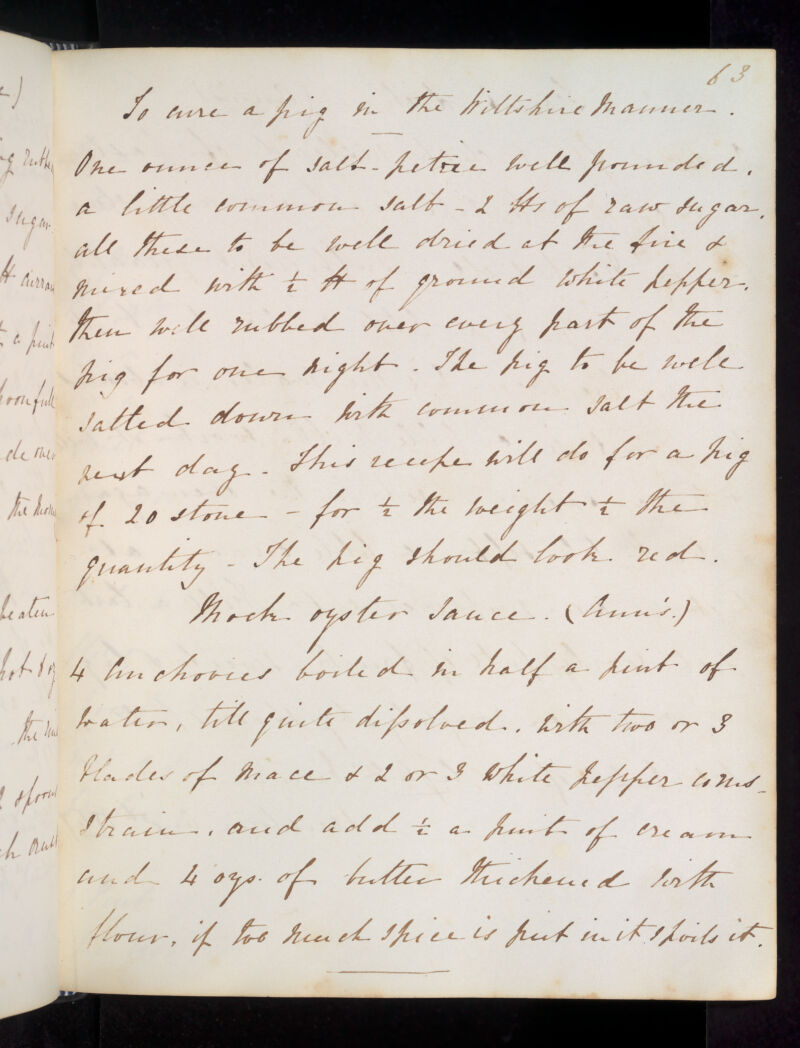 63
To cure a pig in the Wiltshire Manner.
One ounce of salt-petre well pounded,
a little common salt - 2 ℔s of raw sugar,
all these to be well dried at the fire &
mixed with ½ ℔ of ground white pepper,
then well rubbed over every part of the
pig for one night. The pig to be well
salted down with common salt the
next day. This recipe will do for a pig
of 20 stone - for ½ the weight ½ the
quantity - The pig should look red.
Mock oyster sauce. (Ann's.)
4 Anchovies boiled in half a pint of
water, till quite dissolved, with two or 3
blades of mace & 2 or 3 white pepper corns -
strain, and add ½ a pint of cream
and 4 ozs. of butter thickened with
flour, if too much spice is put in it spoils it.
sugar
a pint
the
beaten
the